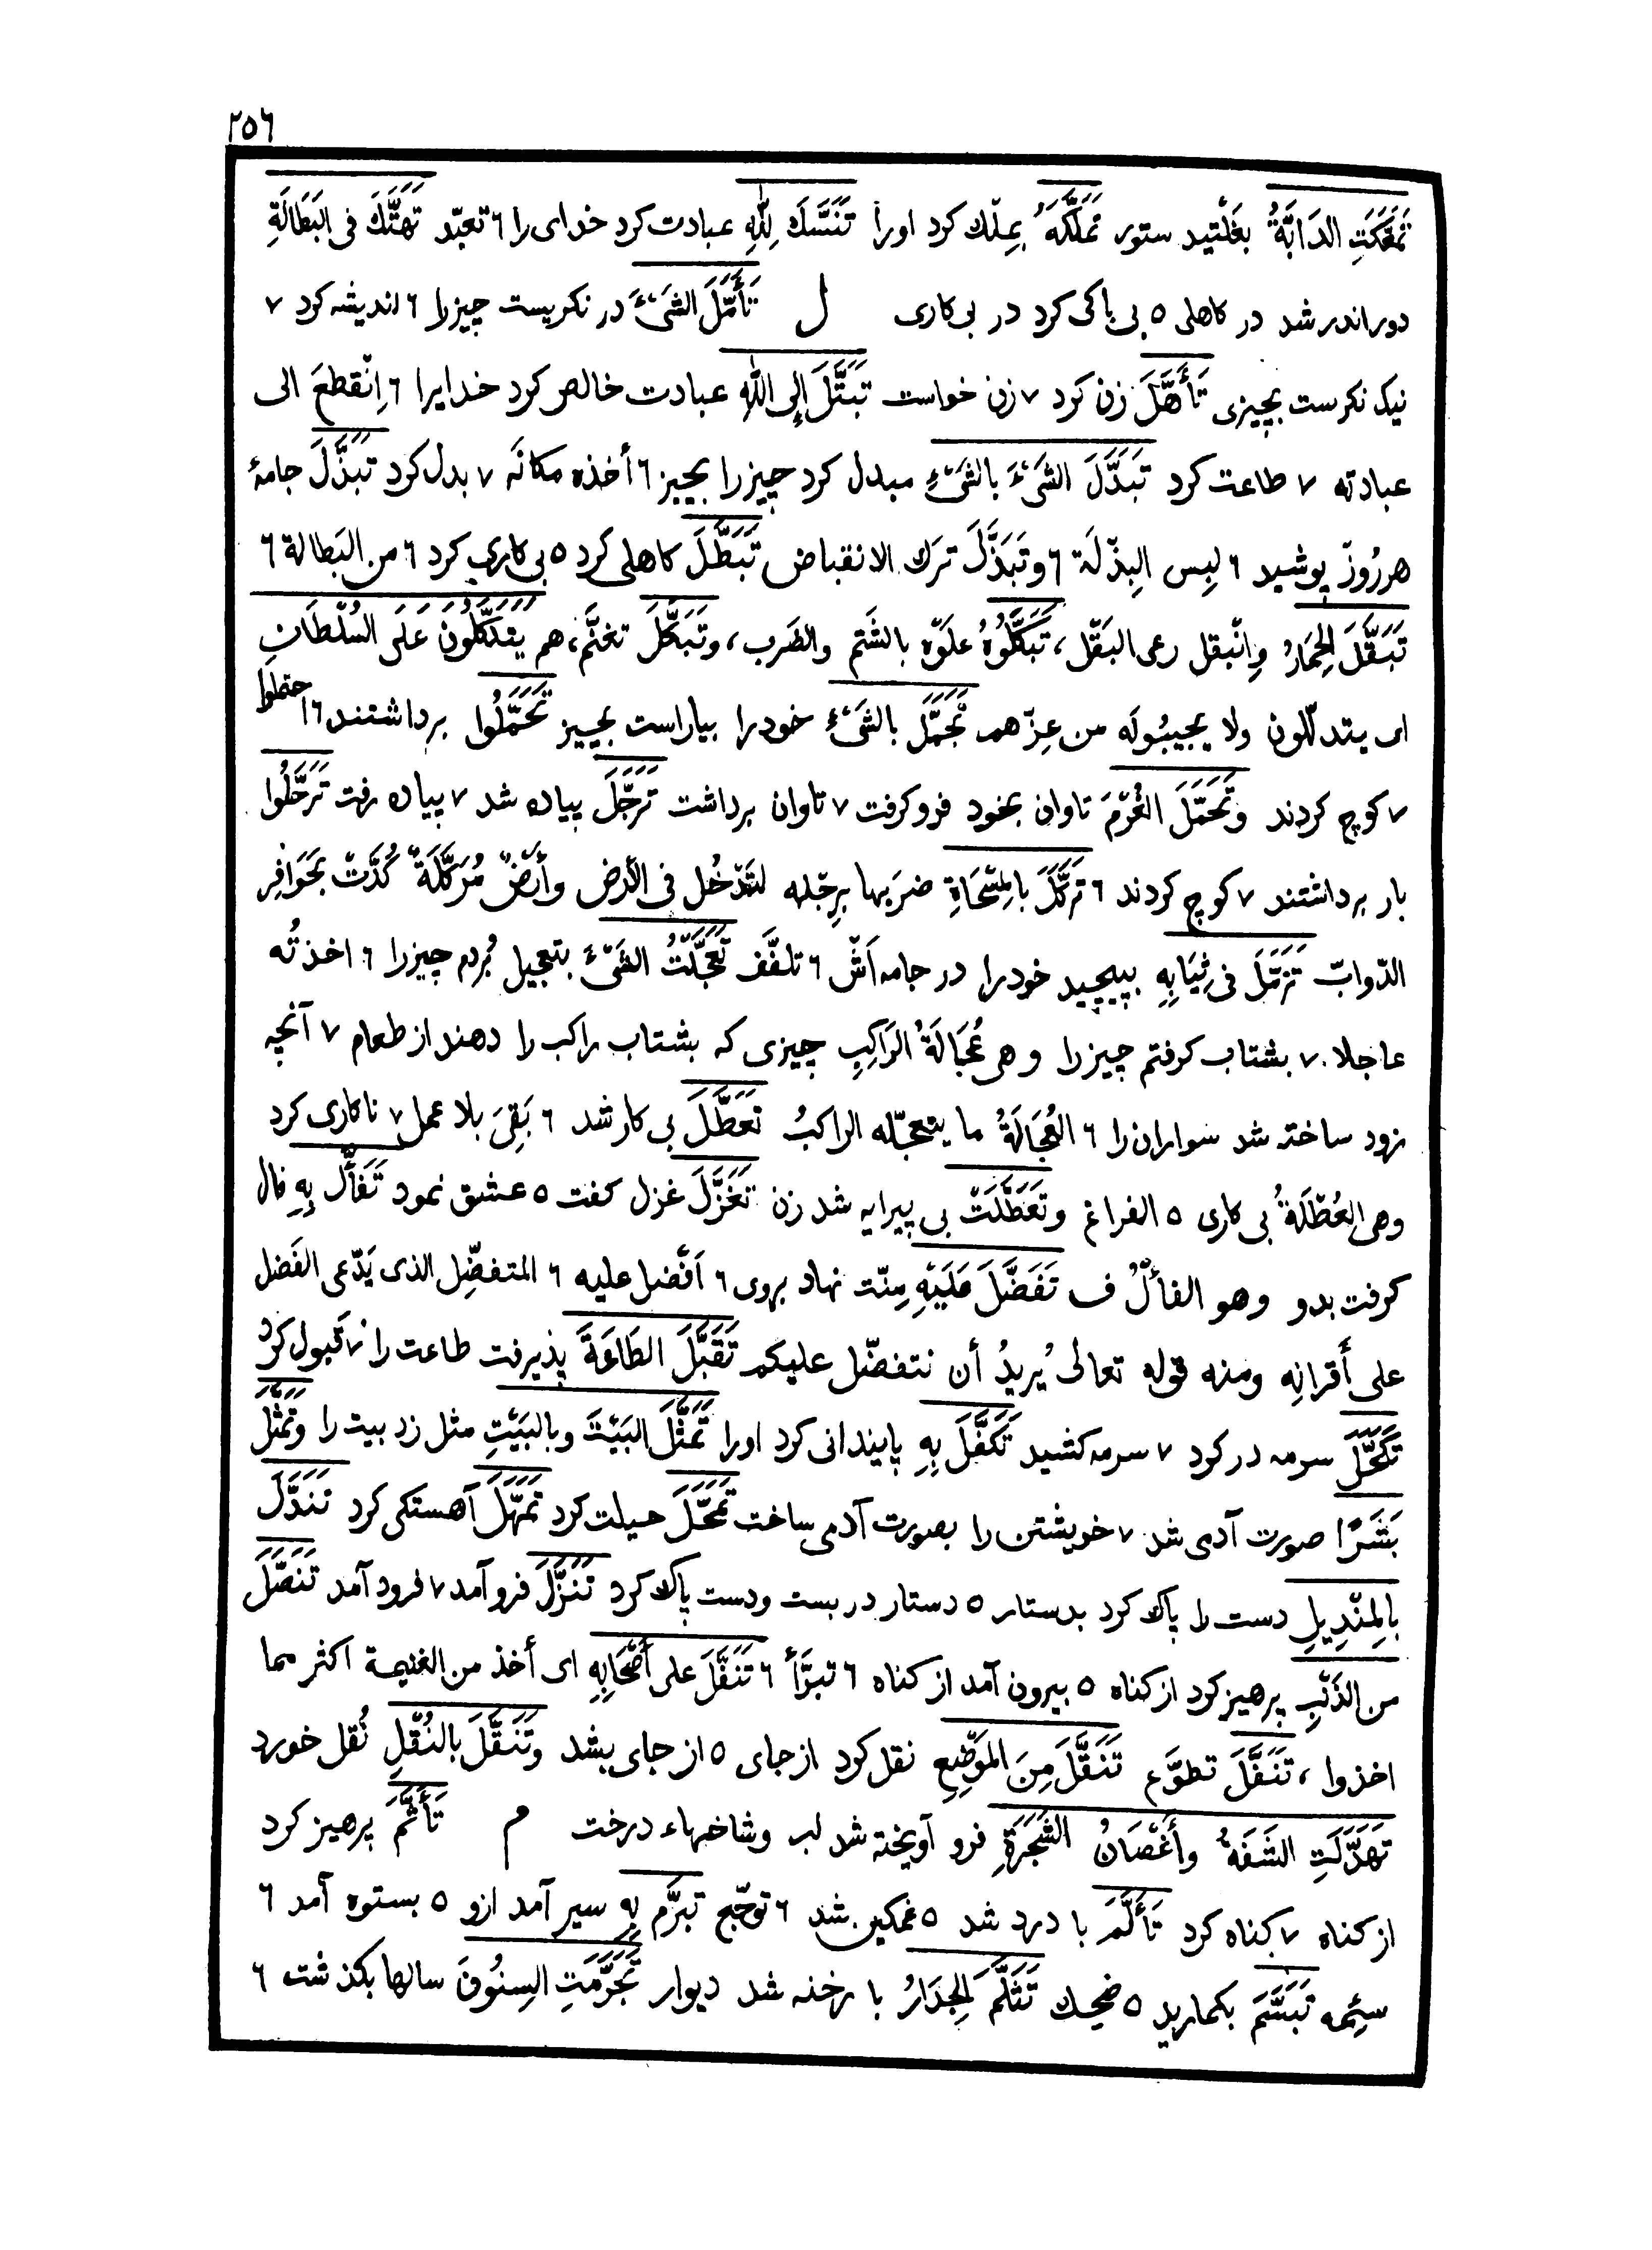 ٢٥٦
تَمَعَّكَتِ الدَابَّةُ بغلتید ستور تَمَلَّكَهُ بملك کرد اورا تَنَسَّكَ لِلّٰهِ عبادت کرد خدای را ٦ تعبّد تَهَتَّكَ فى البَطَالَةِ
دور اندر شد در کاهلی ٥ بی باکی کرد در بی کاری ل تَأَمَّلَ الشَىْءَ در نکریست چیز را ٦ اندیشه کرد ٧
نیك نکرست بچیزی تَأَهَّلَ زن کرد ٧ زن خواست تَبَتَّلَ إلى اللّٰهِ عبادت خالص کرد خدایرا ٦ اِنْقطعَ الى
عبادته ٧ طاعت کرد تَبَدَّلَ الشَىْءَ بالشَىْءِ مبدل کرد چیز را بچیز ٦ أخذه مكانَه ٧ بدل کرد تَبَذَّلَ جامۀ
هر رُوزْ پوشید ٦ لبِس البِذْلَة ٦ وتَبَذَّلَ ترَك الانقباض تَبَطَّلَ کاهلی کرد ٥ بی کاری کرد ٦ من البَطالة ٦
تَبَقَّلَ الحِمَارُ وانْبقل رعى البَقْل، تَبَكَّلُوهُ علَوْه بالشَتم والضَرب، وتَبَكَّلَ تغنَّم، هم يتدَكَّلُونَ عَلَى السُلْطَانِ
اى يتدلّلون ولا يجيبُونَه من عِزّهم تَجَمَّلَ بالشَىْءِ خود را بیاراست بچیز تَحَمَّلُوا برداشتند ٦ احتملوا
٧ کوچ کردند وتَحَمَّلَ الغُرْمَ تاوان بخود فرو کرفت ٧ تاوان برداشت تَرَجَّلَ پیاده شد ٧ پیاده رفت تَرَحَّلُوا
بار برداشتند ٧ کوچ کردند ٦ تَرَكَّلَ بالمِسْحَاةِ ضرَبها برِجْله لتَدْخُل فى الأرض وأرْضٌ مُرَكَّلَةٌ كُدَّتْ بحَوَافِرِ
الدّوابّ تَزَمَّلَ فى ثِيَابِهِ بپیچید خود را در جامه اَشْ ٦ تلفَّف تَعَجَّلْتُ الشَىْءَ بتعجیل بُردم چیز را ٦ اخذتُه
عاجلا ٧ بشتاب کرفتم چیز را وهى عُجَالَةُ الرَاكِبِ چیزی که بشتاب راکب را دهند از طعام ٧ آنچه
زود ساخته شد سواران را ٦ العُجَالَةُ ما يتعجّله الراكبُ تَعَطَّلَ بی کار شد ٦ بَقِىَ بلا عمل ٧ ناکاری کرد
وهى العُطْلَةُ بی کاری ٥ الفراغ وتَعَطَّلَتْ بی پیرایه شد زن تَغَزَّلَ غزل کفت ٥ عشق نمود تَفَأَّلَ بِهِ فال
کرفت بدو وهو الفأْلُ ف تَفَضَّلَ عَلَيْهِ مِنّت نهاد بروی ٦ اَفْضل عليه ٦ المتفضِّل الذى يَدّعى الفَضل
على أَقرانِه ومنه قوله تعالى يُريدُ أن نتفضّل عليكم تَقَبَّلَ الطَاعَةَ پذیرفت طاعت را ٧ قَبول کرد
تَكَحَّلَ سرمه در کرد ٧ سرمه کشید تَكَفَّلَ بِهِ پایندانی کرد اورا تَمَثَّلَ البَيْتَ وبالبَيْتِ مثل زد بیت را وتَمَثَّلَ
بَشَرًا صورت آدمی شد ٧ خویشتن را بصورت آدمی ساخت تَمَحَّلَ حیلت کرد تَمَهَّلَ آهستکی کرد تَنَدَّلَ
بالمِنْدِيلِ دست را پاك کرد بدستار ٥ دستار در بست ودست پاك کرد تَنَزَّلَ فرو آمد ٧ فرود آمد تَنَصَّلَ
من الذَنْبِ پرهیز کرد از کناه ٥ بیرون آمد از کناه ٦ تبرَّأ ٦ تَنَفَّلَ على أَصْحَابِهِ اى أخذ من الغنيمة اكثر مما
اخذوا، تَنَفَّلَ تطوَّع تَنَقَّلَ مِنَ المَوْضِعِ نقل کرد از جای ٥ از جای بشد وتَنَقَّلَ بالنُقْلِ نُقل خورد
تَهَدَّلَتِ الشَفَةُ وأَغْصَانُ الشَجَرَةِ فرو آویخته شد لب وشاخهاء درخت م تَأَثَّمَ پرهیز کرد
از کناه ٧ کناه کرد تَأَلَّمَ با درد شد ٥ غمکین شد ٦ توجّع تَبَرَّمَ بِهِ سیر آمد ازو ٥ بستوه آمد ٦
سئِمه تَبَسَّمَ بکمارید ٥ ضحِك تَثَلَّمَ الجِدَارُ با رخنه شد دیوار تَجَرَّمَتِ السِنُونَ سالها بکذشت ٦